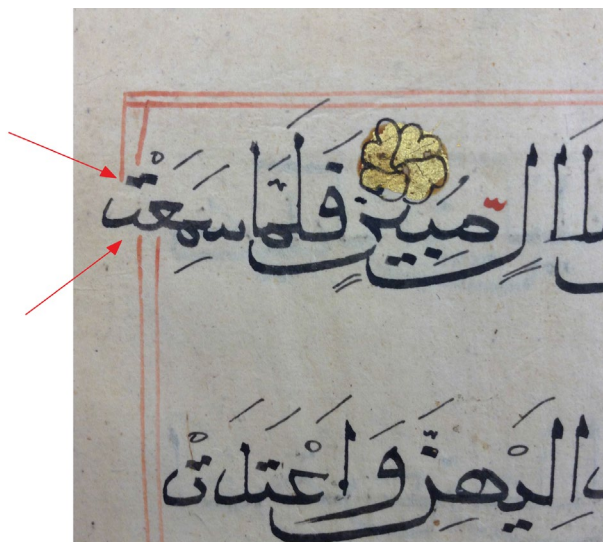 لَالٍ مُّبِينٍ فَلَمَّا سَمِعَتْ
اِلَيْهِنَّ وَاَعْتَدَتْ